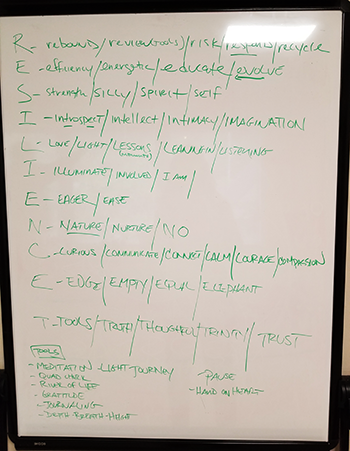 R- rebound/review(tools)/risk/respond/recycle
E- efficiency/energetic/educate/evolve
S- strength/silly/spirit/self
I- introspect/intellect/intimacy/IMAGINATION
L- LOVE/LIGHT/LESSONS/LEARNING/LISTENING
I- ILLUMINATE/INVOLVED/I AM/
E- EAGER/EASE
N- NATURE/NURTURE/NO
C- CURIOUS/COMMUNICATE/CONNECT/CALM/COURAGE/COMPASSION
E- EDGE/EMPTY/EQUAL/ELEPHANT
T- TOOLS/TRUTH/THOUGHTFUL/TRINITY/TRUST
TOOLS
-MEDITATION-LIGHT JOURNEY
-QUAD
-RIVER OF LIFE
-GRATITUDE
-JOURNALING
-BREATH-
PAUSE
-HAND ON HEART